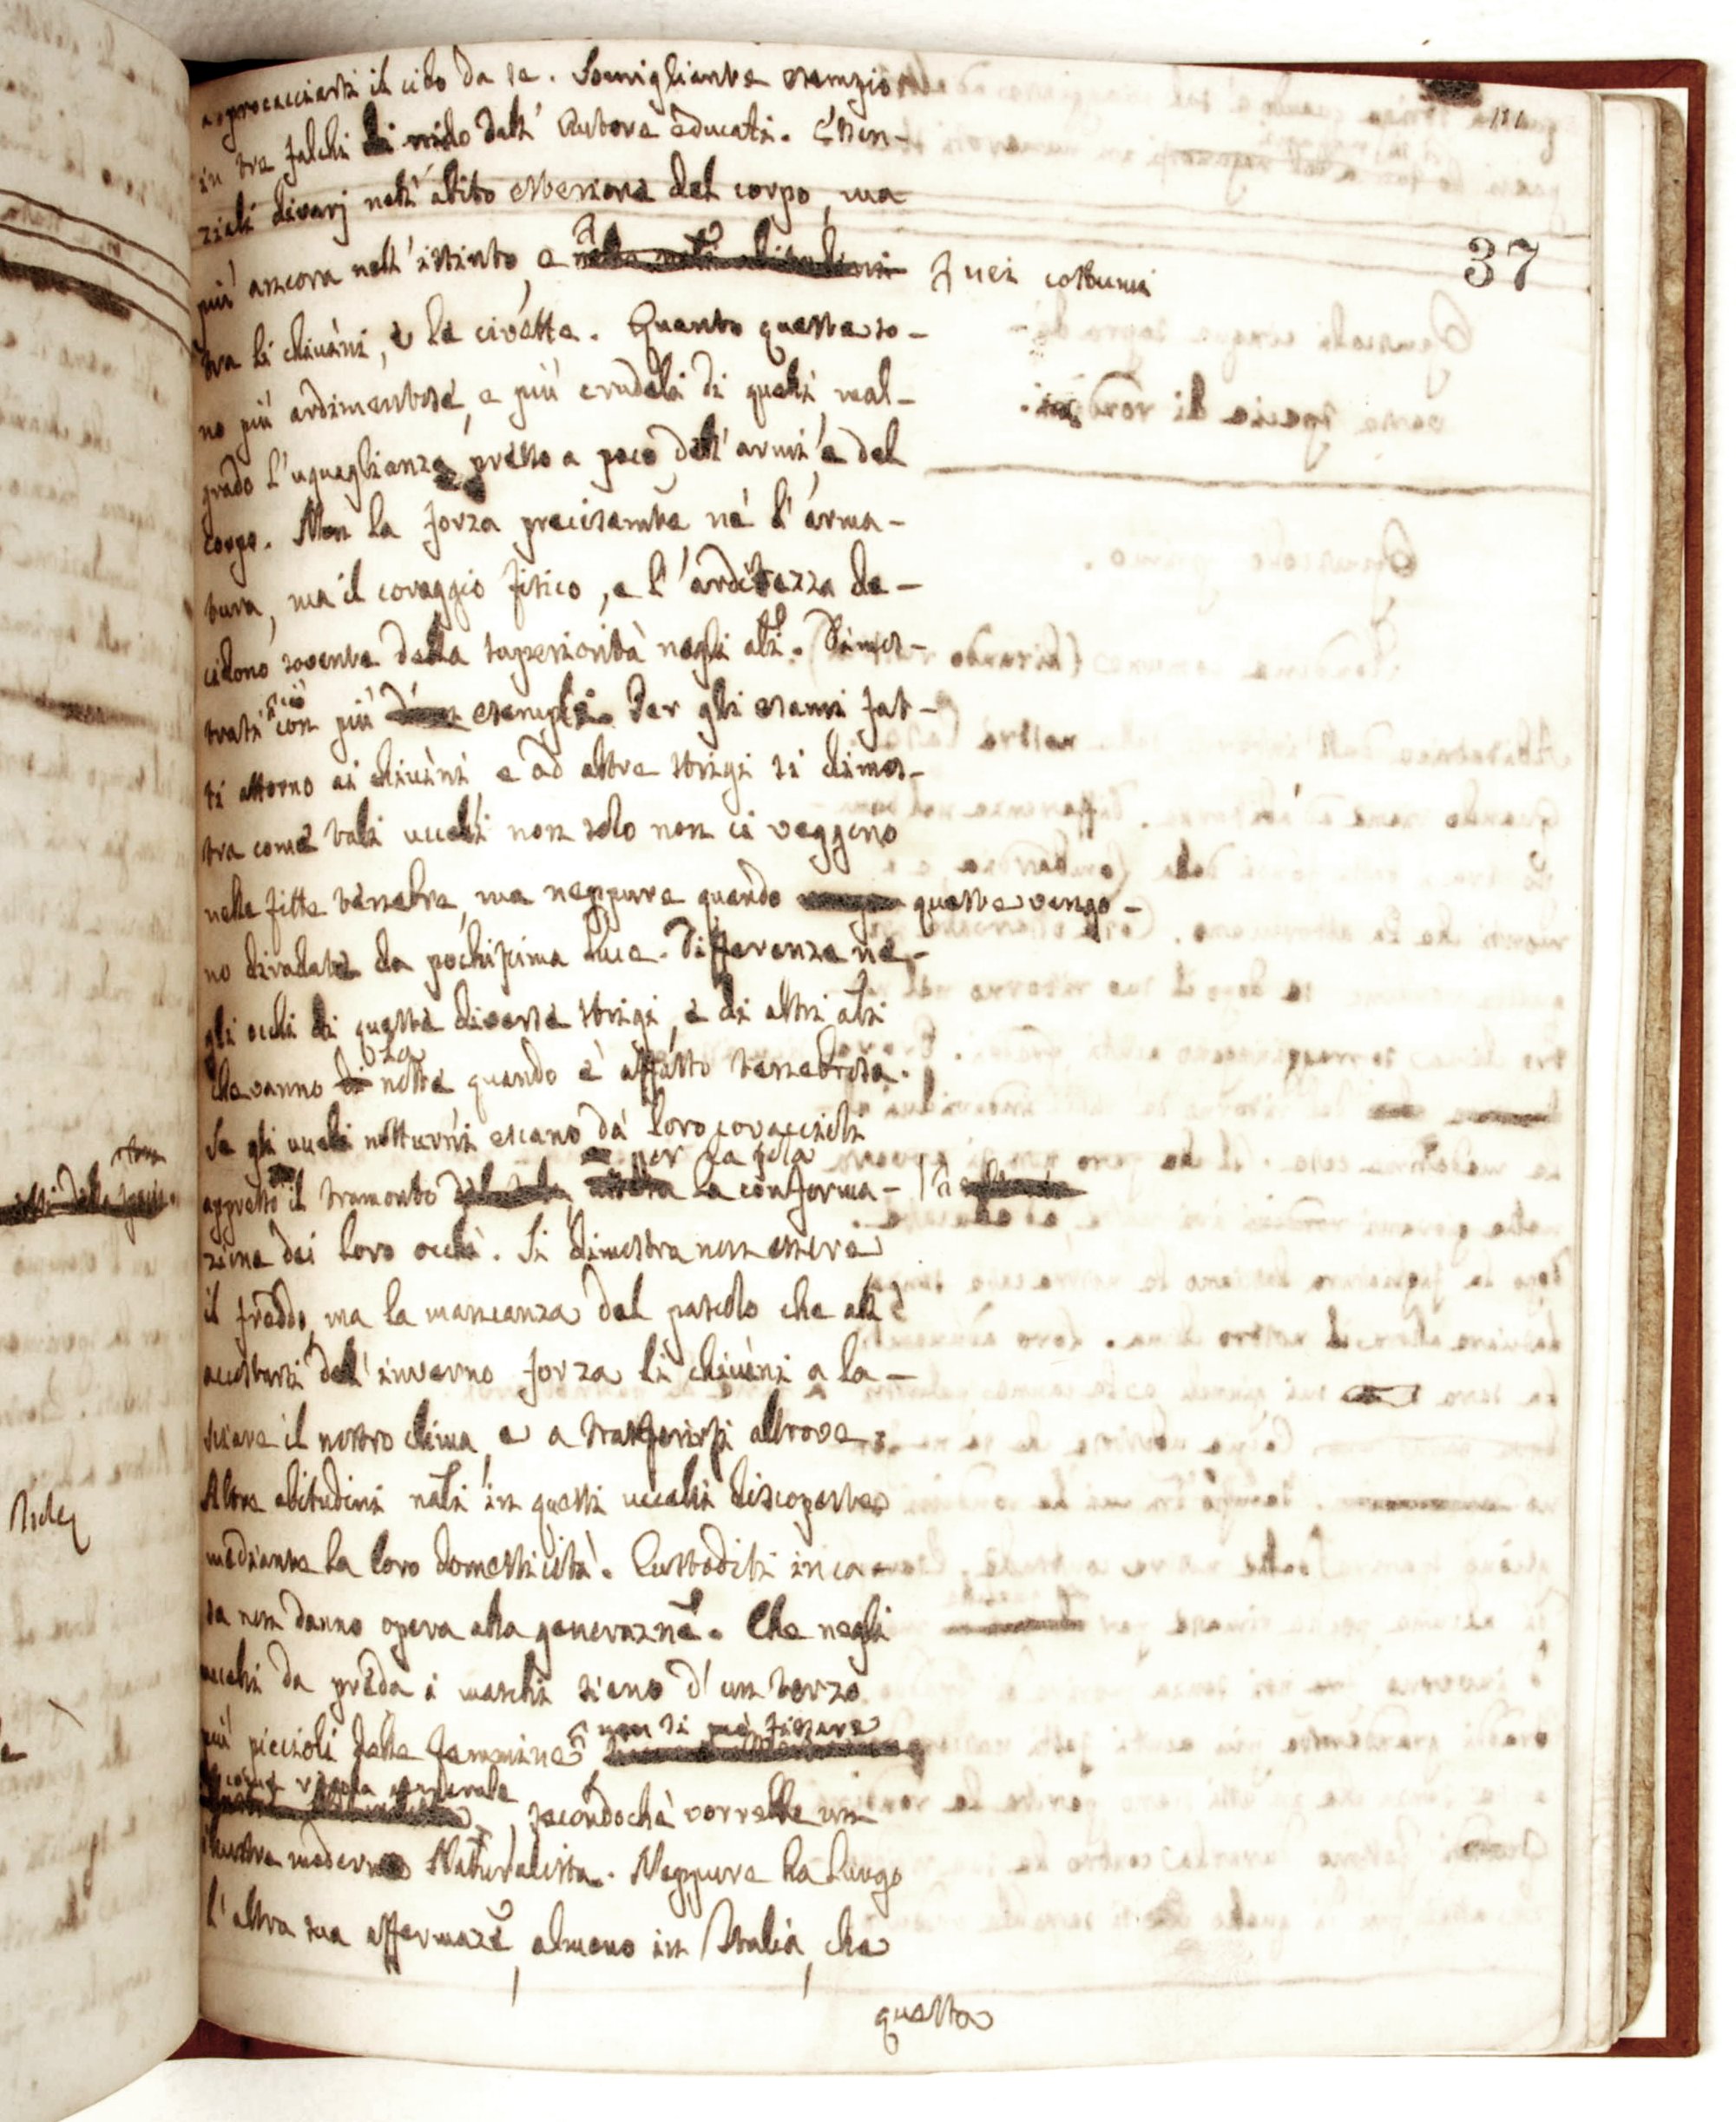 a procacciarsi il cibo da se. Somigliante esempio
in tre falchi di nido dall' Autore educati. Essen-
ziali divarj nell' abito esteriore del corpo, ma
più ancora nell' istinto, e nei costumi
tra li chiùini, e le civette. Quanto queste so-
no più ardimentose, e più crudeli di quelli, mal-
grado l'uguaglianza presso a poco dell' armi, e del
corpo. Non la forza precisamte nè l' arma-
tura, ma il coraggio fisico, e l' arditezza de-
cidono sovente della superiorità negli ali. Dimos-
trasi ciò con più esempli. Per gli esami fat-
ti attorno ai chiùini, e ad altre strigi si dimos-
tra come tali uccelli non solo non ci veggono
nelle fitte tenebre, ma neppure quando queste vengo-
no diradate da pochissima luce. Differenza ne-
gli occhi di queste diverse strigi, e di altri ali
che vanno di notte quando è affatto tenebrosa.
Se gli uccelli notturni escano da' loro covaccioli
appresso il tramonto per la sola la conforma-
zione dei loro occhi. Si dimostra non essere
il freddo, ma la mancanza del pascolo che all'
accostarsi dell' inverno forza li chiùini a la-
sciare il nostro clima, e a trasferirsi altrove.
Altre abitudini nali in questi uccelli discoperte
mediante la loro domesticità. Custoditi in ca-
sa non danno opera alla generazne. Che negli
uccelli da preda i maschi sieno d' un terzo
più piccioli delle femmine non si può fissare
come regola generale, secondochè vorrebbe un
illustre moderno Naturalista. Neppure ha luogo
l' altra sua affermaze, almeno in Italia, che
questa
37